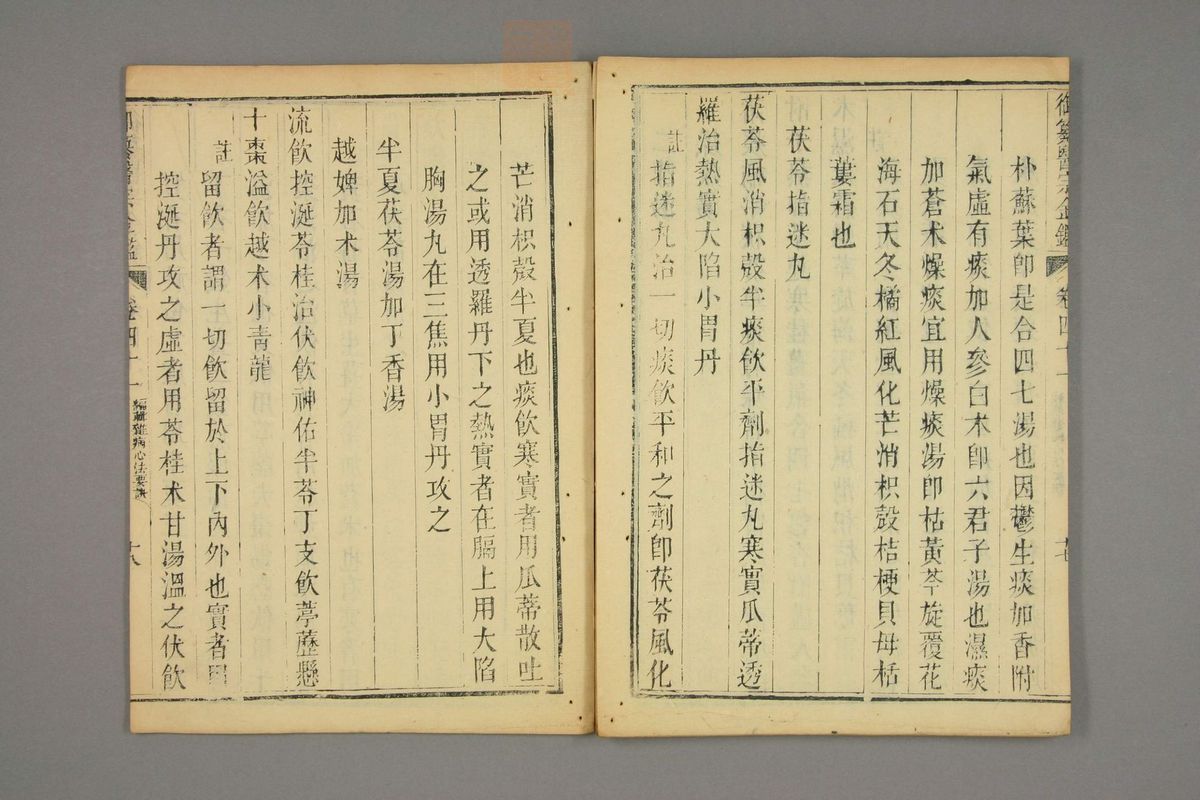 御纂醫宗金鑑 卷四十一
朴蘇葉即是合四七湯也因鬱生痰加香附
氣虛有痰加人參白术即六君子湯也濕痰
加蒼术燥痰宜用燥痰湯即枯黃芩旋覆花
海石天冬橘紅風化芒消枳殼桔梗貝母栝
蔞霜也
茯苓指迷丸
茯苓風消枳殼半痰飲平劑指迷丸寒實瓜蒂透
羅治熱實大陷小胃丹
註指迷丸治一切痰飲平和之劑即茯苓風化
芒消枳殼半夏也痰飲寒實者用瓜蒂散吐
之或用透羅丹下之熱實者在膈上用大陷
胸湯丸在三焦用小胃丹攻之
半夏茯苓湯加丁香湯
越婢加术湯
流飲控涎苓桂治伏飲神佑半苓丁支飲葶藶懸
十棗溢飲越术小青龍
註留飲者謂一切飲留於上下內外也實者用
控涎丹攻之虛者用苓桂术甘湯溫之伏飲
御纂醫宗金鑑 卷四十一 編輯雜病心法要訣 十八